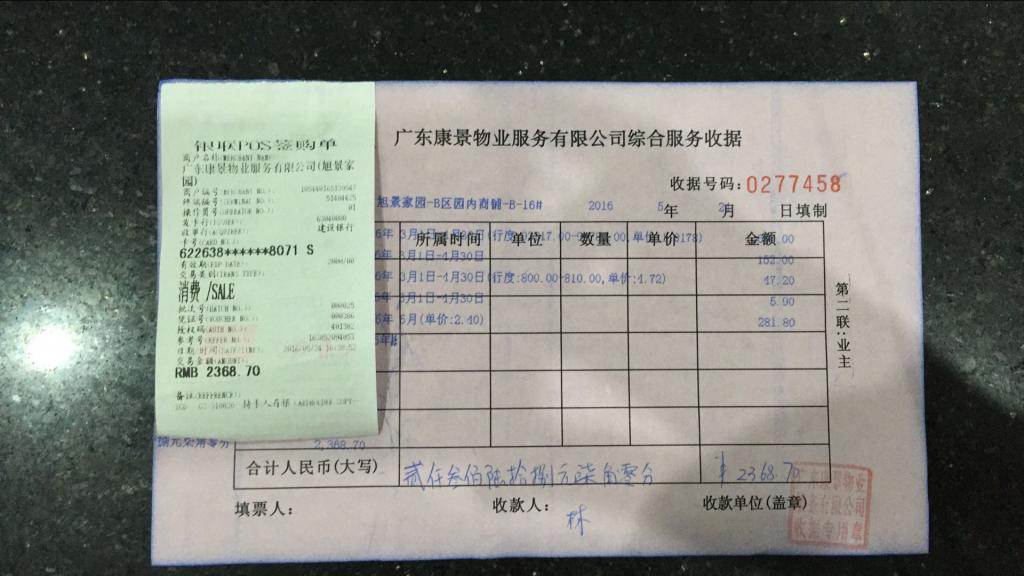 银联POS签购单
商户名称(MERCHANT NAME)
广东康景物业服务有限公司(旭景家
园)
商户编号(MERCHANT NO.):
终端编号(TERMINAL NO.): 51404425
操作员号(OPERATOR NO.): 01
发卡行(ISSUER): 63040000
收单行(ACQUIRER): 建设银行
卡号(CARD NO.)
622638******8071 S
有效期(EXP DATE):
交易类别(TRANS TYPE):
消费 /SALE
批次号(BATCH NO.): 000025
凭证号(VOUCHER NO.):
授权码(AUTH NO.): 401362
参考号(REFER NO.):
日期/时间(DATE/TIME):
交易金额(AMOUNT):
RMB 2368.70
备注(REFERENCE):
持卡人存根
广东康景物业服务有限公司综合服务收据
收据号码:0277458
旭景家园-B区园内商铺-B-16# 2016 5年 月 日填制
所属时间 单位 数量 单价 金额
3月1日-4月30日 152.00
3月1日-4月30日(行度:800.00-810.00,单价:1.72) 17.20
3月1日-4月30日 5.90
6月(单价:2.40) 281.80
捌元柒角零分 2,368.70
合计人民币(大写) 贰仟叁佰陆拾捌元柒角零分 ¥2368.70
填票人: 收款人: 林 收款单位(盖章)
第二联:业主
广东康景物业
服务有限公司
收据专用章